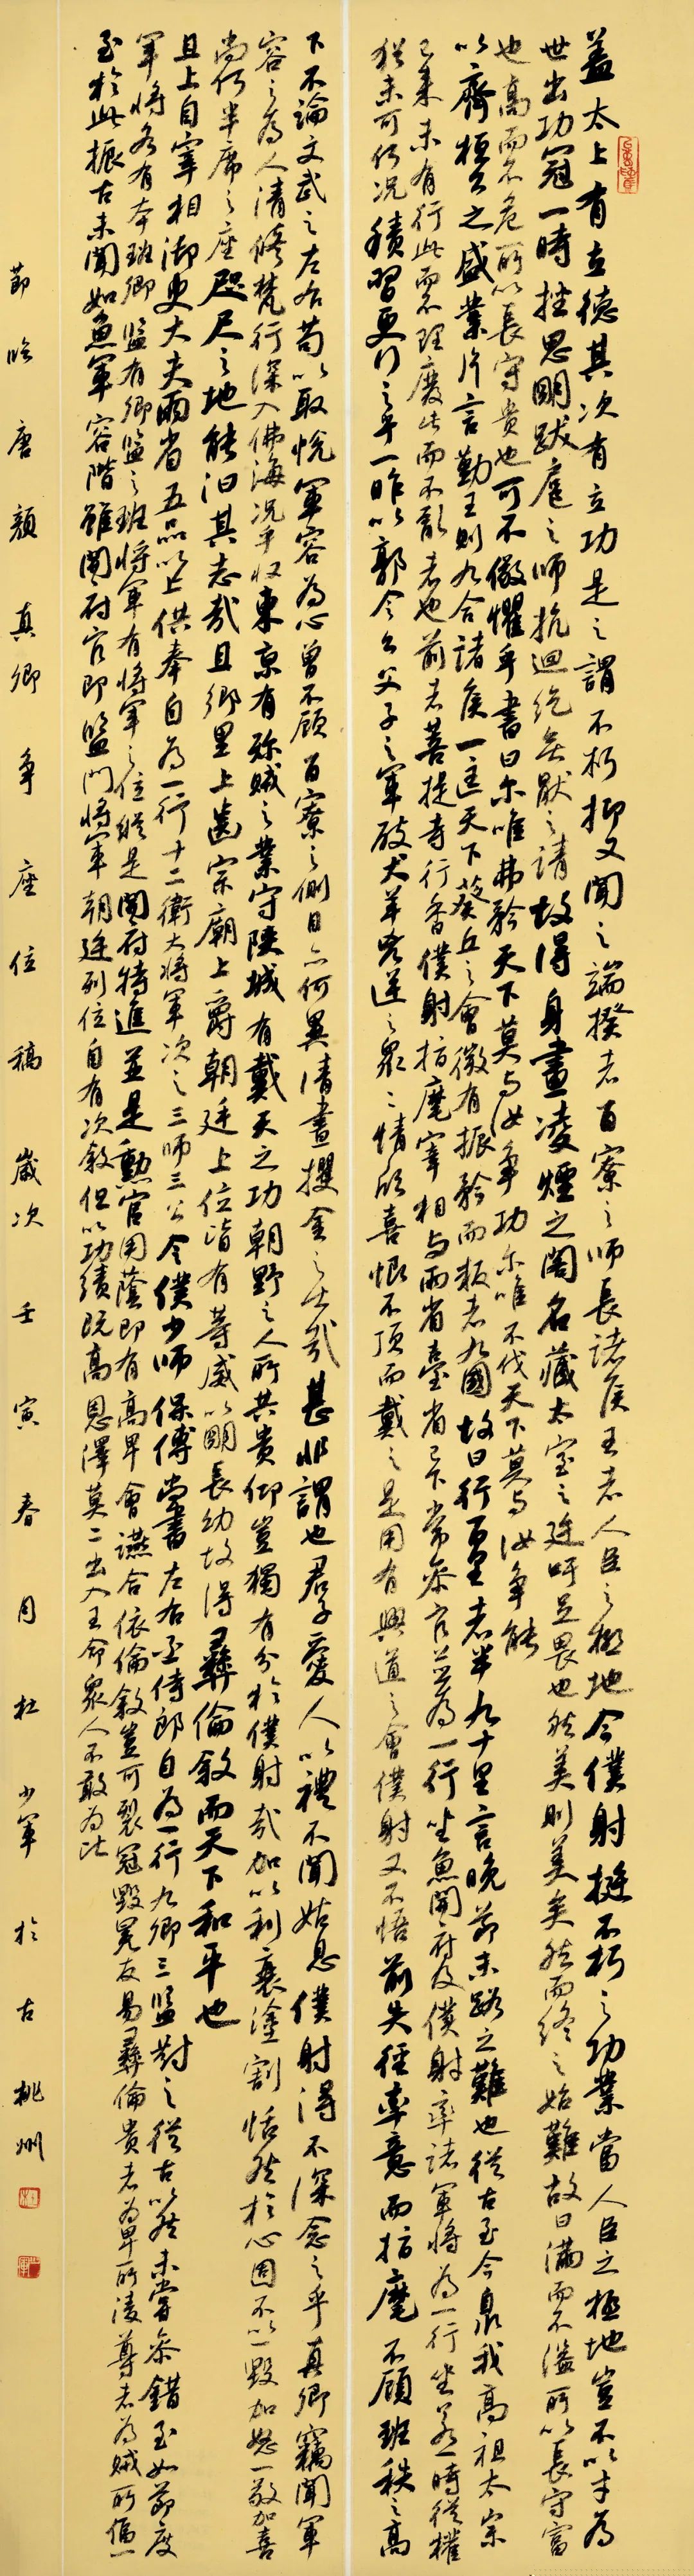 盖太上有立德其次有立功是之謂不朽抑又聞之端揆者百寮之師長諸侯王者人臣之極地今僕射挺不朽之功業當人臣之極地豈不以才為
世出功冠一時挫思明跋扈之師抗迴紇無猒之請故得身畫凌煙之閣名藏太室之廷吁足畏也然美則美矣然而終之始難故曰滿而不溢所以長守富
也高而不危所以長守貴也可不儆懼乎書曰尔唯弗矜天下莫与汝爭功尔唯不伐天下莫与汝爭能
以齊桓公之盛業片言勤王則九合諸侯一匡天下葵丘之會微有振矜而叛者九國故曰行百里者半九十里言晚節末路之難也從古至今泉我高祖太宗
已来未有行此而不理廢此而不亂者也前者菩提寺行香僕射指麾宰相与兩省臺省已下常参官並為一行坐魚開府及僕射率諸軍將為一行坐若一時從權
猶未可何況積習更行之乎一昨以郭令公父子之軍破犬羊兇逆之眾眾情欣喜恨不頂而戴之是用有興道之會僕射又不悟前失徑率意而指麾不顧班秩之高
下不論文武之左右苟以取悅軍容為心曾不顧百寮之側目亦何異清晝攫金之士哉甚非謂也君子愛人以禮不聞姑息僕射得不深念之乎真卿竊聞軍
容之為人清修梵行深入佛海況乎收東京有殄賊之業守陝城有戴天之功朝野之人所共貴仰豈獨有分於僕射哉加以利衰塗割恬然於心固不以一毀加怒一敬加喜
尚何半席之座咫尺之地能汩其志哉且鄉里上齒宗廟上爵朝廷上位皆有等威以明長幼故得彝倫敘而天下和平也
且上自宰相御史大夫兩省五品以上供奉自為一行十二衛大將軍次之三師三公令僕少師保傅尚書左右丞侍郎自為一行九卿三監對之從古以然未嘗参錯至如節度
軍將各有本班卿監有卿監之班將軍有將軍之位縱是開府特進並是勳官用蔭即有高卑會讌合依倫敘豈可裂冠毀冕反易彝倫貴者為卑所凌尊者為賊所偪一
至於此振古未聞如魚軍容階雖開府官即監門將軍朝廷列位自有次敘但以功績既高恩澤莫二出入王命眾人不敢為比
節臨唐顏真卿爭座位稿歲次壬寅春月杜少軍於古桃州